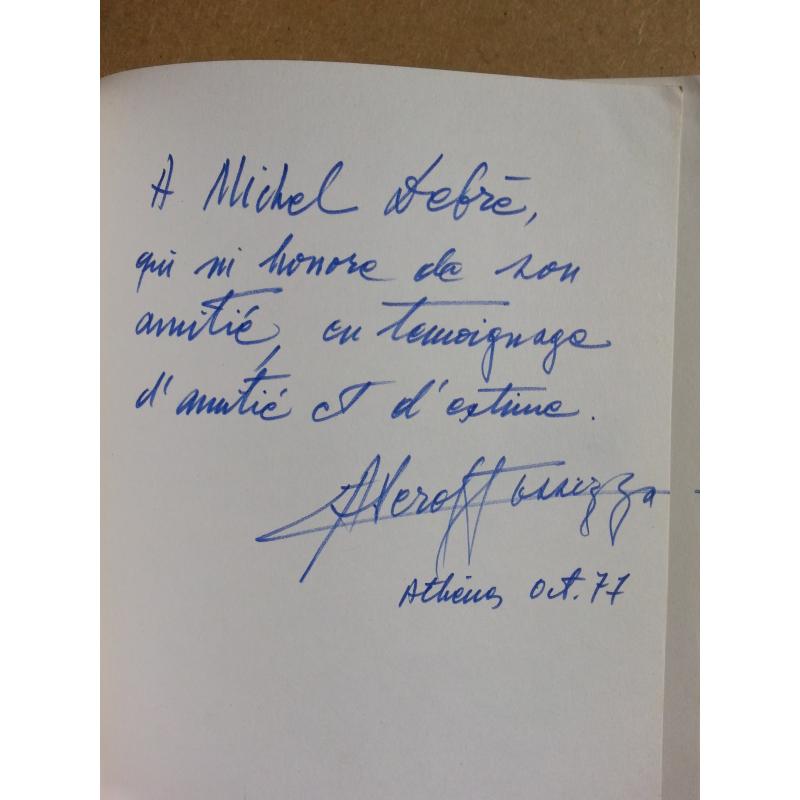 A Michel Debré,
qui m'honore de son
amitié, en temoignage
d'amitié et d'estime.
Athènes Oct. 77